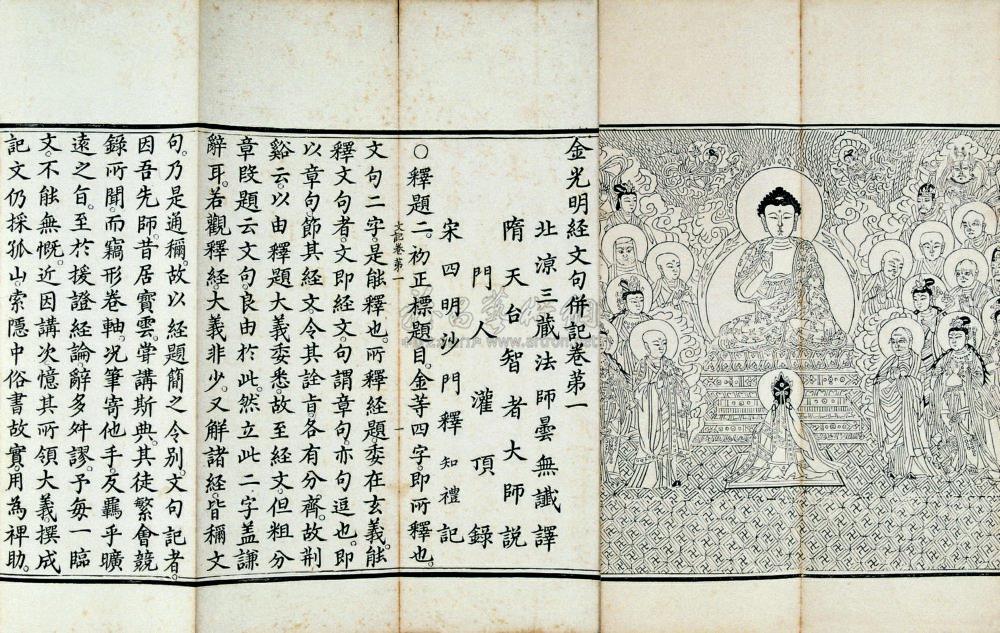 金光明经文句併記卷第一
北涼三藏法師曇無讖譯
隋天台智者大師説
門人灌頂錄
宋四明沙門釋知禮記
○釋題二。初正標題目。金等四字。即所釋也。
文記卷第一
一
文句二字。是能釋也。所釋經題。委在玄義。能
釋文句者。文即經文。句謂章句。亦句逗也。即
以章句節其經文。令其詮旨。各有分齊。故荆
谿云。以由釋題大義委悉。故至經文。但粗分
章段題云文句。良由於此。然立此二字。盖謙
辭耳。若觀釋經。大義非少。又解諸經。皆稱文
句。乃是通稱。故以經題簡之令别。文句記者。
因吾先師。昔居寶雲。嘗講斯典。其徒繁會競
錄所聞。而竊形卷軸。况筆寄他手。反羈乎曠
遠之旨。至於援證經論。辭多舛謬。予每一臨
文。不能無慨。近因講次。憶其所領大義。撰成
記文。仍採孤山索隱中俗書故實。用為裨助。